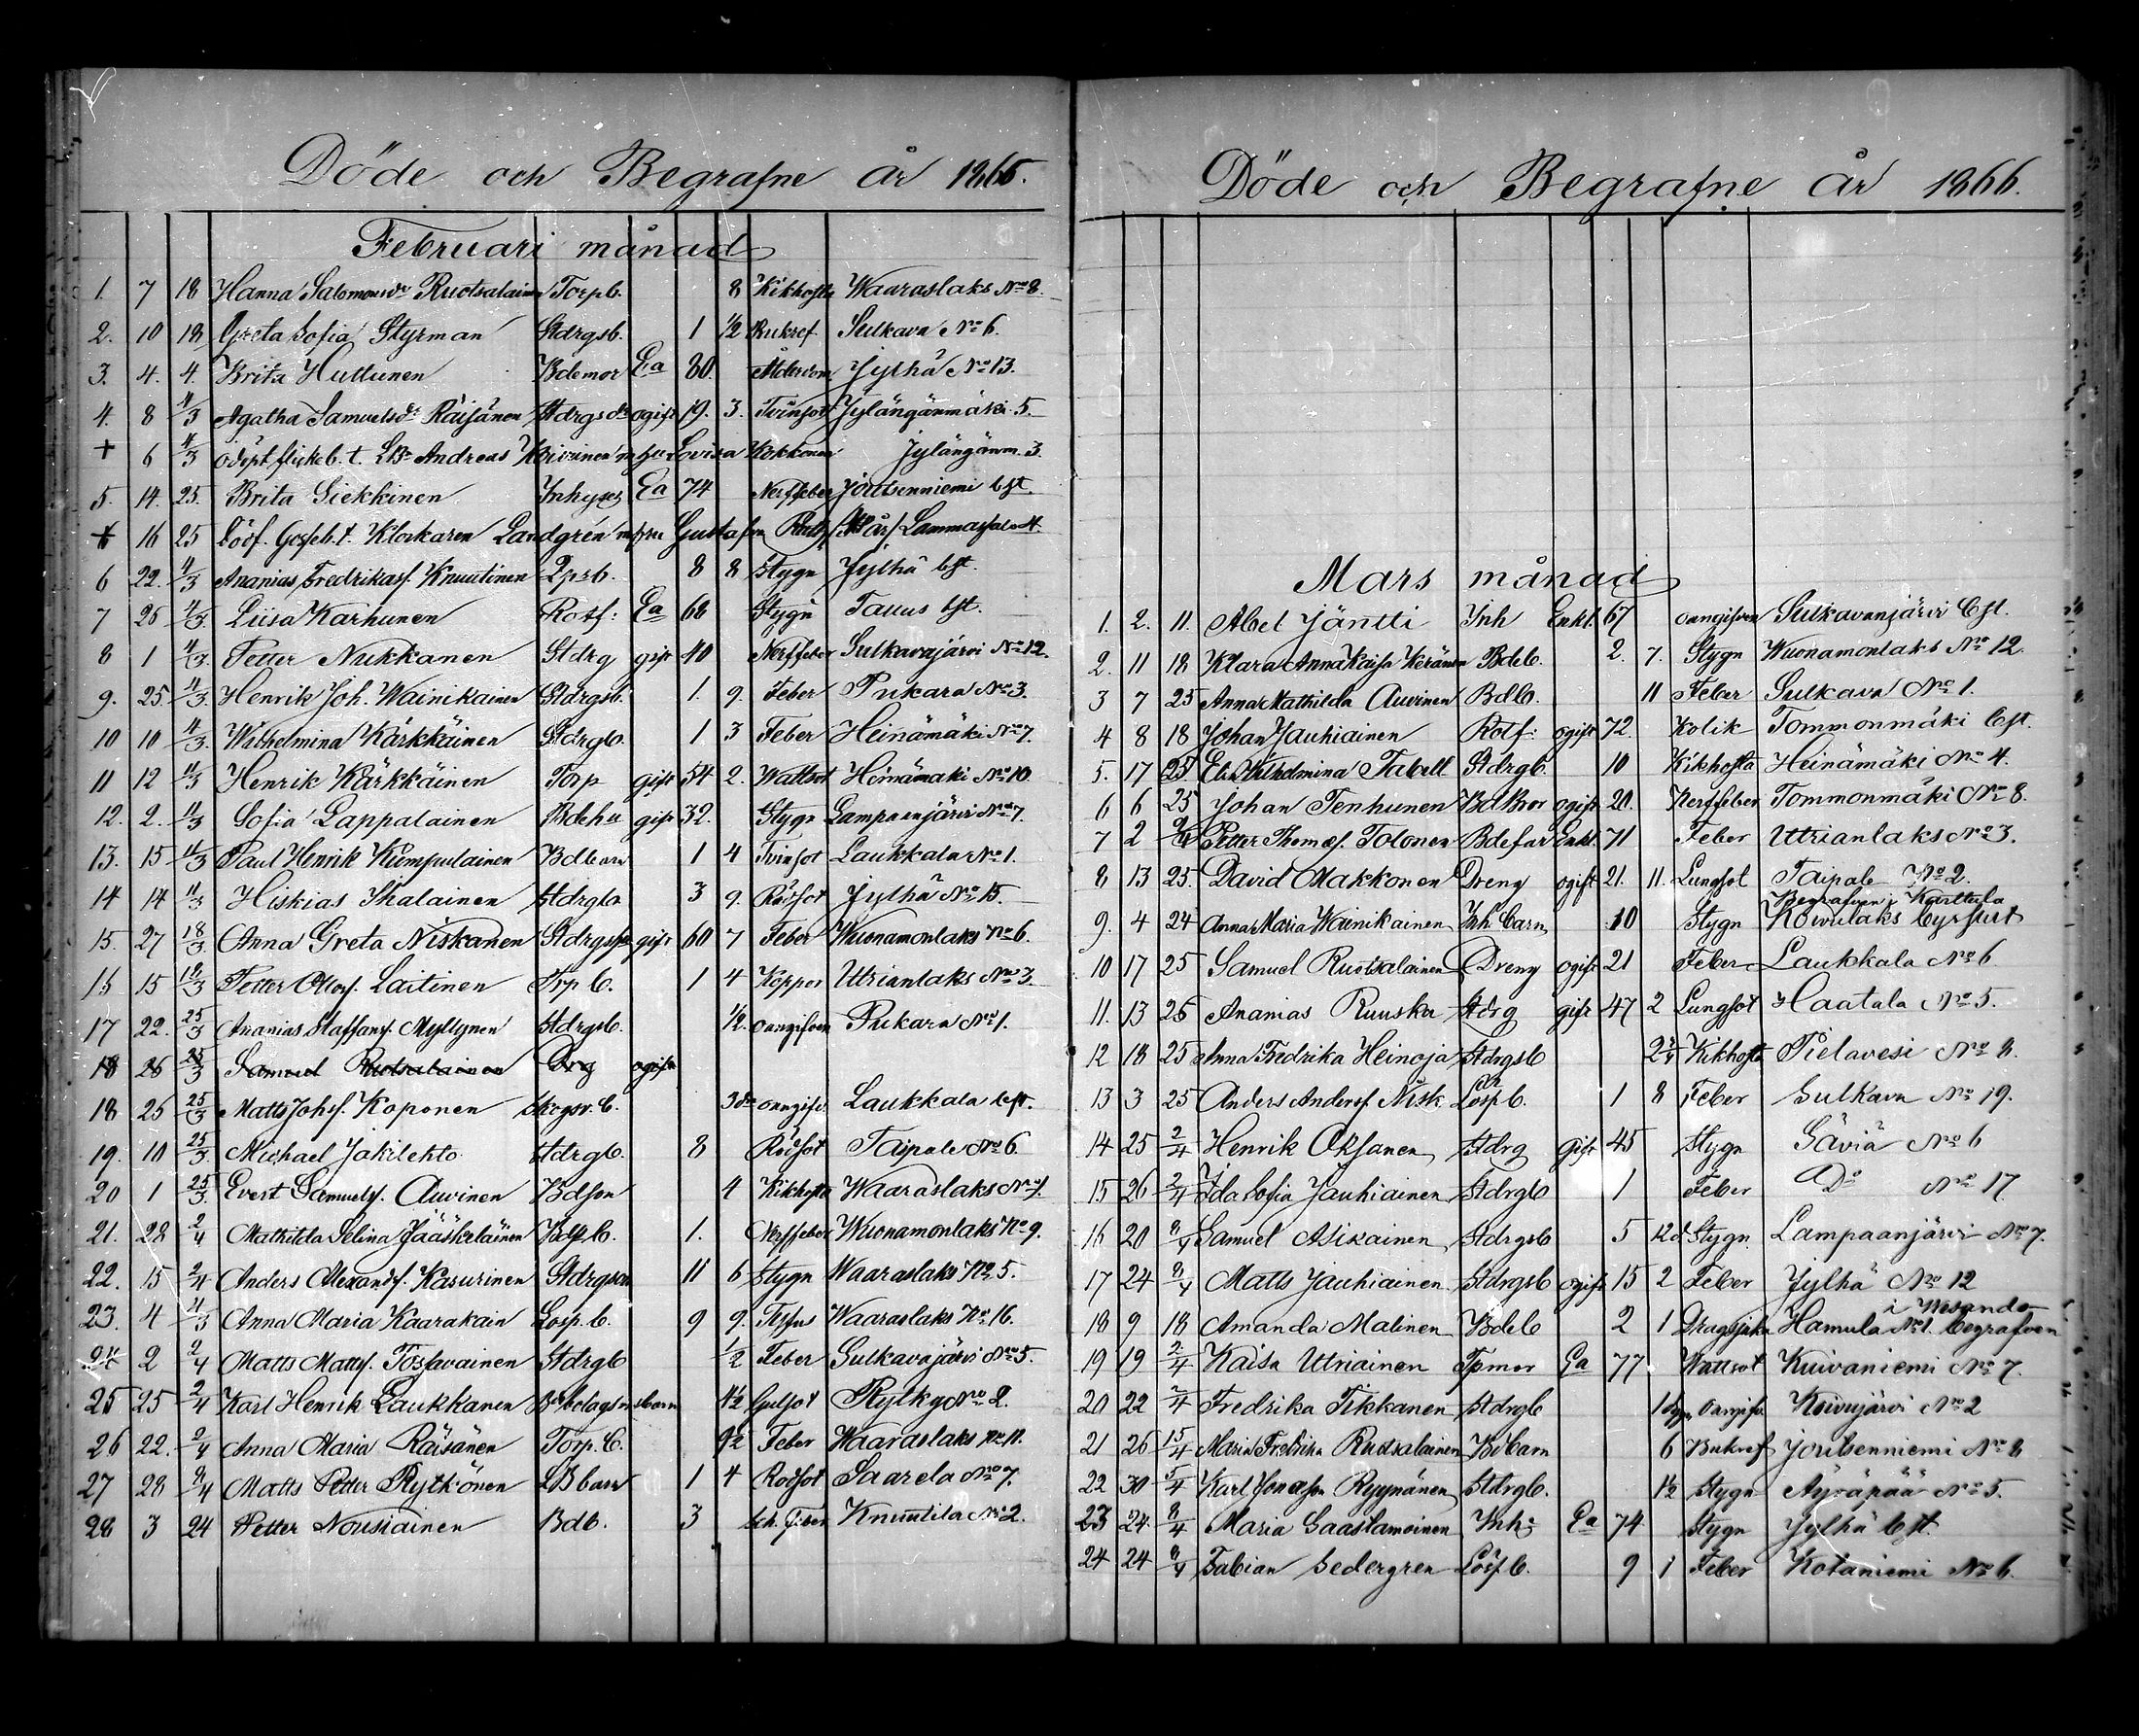 Döde och Begrafne år 1866.
Februari månad
1. 7 18 Hanna Salomonsdr Ruotsalainen Torpb. 8 Kikhosta Waaraslaks No 8.
2. 10 18 Greta Sofia Styrman Stdrgsb. 1 1/2 Bukref Sulkava No 6.
3. 4. 4. Brita Huttunen Bdemor Ea 80. Ålderdom Jylhä No 13.
4. 8 4/3 Agatha Samuelsdr Räisänen Stdrgsdr ogift 19. 3. Tvinsot Jylängänmäki 5.
+ 6 4/3 odöpt flickeb. t. Lbde Andreas Koivunen m hu Lovisa Kokkonen Jylängänm. 3.
5. 14. 25. Brita Siekkinen Inhyses Ea 74 Nerffeber Joutsenniemi bst.
+ 16 25 Klockaren Landgrén Gustafva Lammassalo 4.
6 22. 4/3 Ananias Fredrikasf. Knuutinen 8 8 Stygn Jylhä bst.
7 26 4/3 Liisa Karhunen Rotf: Ea 68 Stygn Tauus bst.
8 1 4/3 Petter Nukkanen Stdrg gift 40 Nerffeber Sulkavajärvi No 12.
9. 25. 4/3 Henrik Joh. Wainikainen Stdrgsb. 1. 9. Feber Pukara No 3.
10 10 4/3 Wilhelmina Kärkkäinen Stdrgb. 1 3 Feber Heinämäki No 7.
11 12 11/3 Henrik Kärkkäinen Torp gift 54 2. Wattsot Heinämäki No 10.
12. 2. 11/3 Sofia Lappalainen Bdehu gift 32. Stygn Lampaanjärvi No 7.
13. 15 11/3 Paul Henrik Kumpulainen Bdbarn 1 4 Tvinsot Laukkala No 1.
14 14 11/3 Hiskias Ihalainen Stdrgb 3 9. Rödsot Jylhä No 15.
15. 27 18/3 Anna Greta Niskanen gift 60 7 Feber Wuonamonlaks No 6.
16 15 18/3 Petter Olofsf. Laitinen Trp b. 1 4 Koppor Utrianlaks No 3.
17 22. 25/3 Ananias Staffansf. Myllynen Stdrgsb. 1/2. oangifven Pukara No 1.
18 26 25/3 Samuel Ruotsalainen Drg ogift
18 25 25/3 Matts Johsf. Koponen Skogsv. b. oangifv. Laukkala bst.
19. 10 25/3 Michael Jakilehto Stdrgb. 8 Rödsot Taipale No 6.
20 1 25/3 Evert Samuelsf. Auvinen Bdson 4 Kikhosta Waaraslaks No 7.
21. 28 2/4 Mathilda Selina Jääskeläinen 1. Nerffeber Wuonamonlaks No 9.
22. 15 2/4 Anders Alexandf. Kasurinen Stdrgson 11 6 Stygn Waaraslaks No 5.
23. 4 4/3 Anna Maria Kaarakain Losp. b. 9 9. Tyfus Waaraslaks No 16.
24 2 2/4 Matts Mattsf. Tossavainen Stdrgb 1/2 Feber Sulkavajärvi No 5.
25 25 2/4 Karl Henrik Laukkanen Bdebolagsmsbarn 4 1/2 Gulsot Rytky No 2.
26 22. 2/4 Anna Maria Räisänen Torp. b. 9 1/2 Feber Waaraslaks No 11.
27 28 8/4 Matts Petter Rytkönen LB barn 1 4 Rödsot Saarela No 7.
28 3 24 Petter Nousiainen Bdb. 3 Feber Knuutila No 2.
Döde och Begrafne år 1866.
Mars månad
1. 2. 11. Abel Jäntti Inh Enkl. 67 oangifven Sulkavanjärvi bst.
2. 11 18 Klara Anna Kaisa Keränen Bdeb. 2. 7. Stygn Wuonamonlaks No 12.
3 7 25 Anna Mathilda Auvinen Bdb. 11 Feber Sulkava No 1.
4 8 18 Johan Jauhiainen Rotf: ogift 72. Kolik Tommonmäki bst.
5. 17 25 Wilhelmina Tabell Stdrgb. 10 Kikhosta Heinämäki No 4.
6 6 25 Johan Tenhunen Bdbror ogift 20. Nerffeber Tommonmäki No 8.
7 2 2/4 Petter Thomasf. Tolonen Bdefar Enkl. 71 Feber Utrianlaks No 3.
8 13 25. David Makkonen Dreng ogift 21. 11. Lungsot Taipale No 2.
Begrafven i Karttula
9. 4 24 Anna Maria Wainikainen Inh barn 10 Stygn Koivulaks
10 17 25 Samuel Ruotsalainen Dreng ogift 21 Feber Laukkala No 6
11. 13 25 Ananias Ruuska Stdrg gift 47 2 Lungsot Haatala No 5.
12 18 25 Anna Fredrika Heinoja Stdrgsb Kikhosta Pielavesi No 8.
13 3 25 Anders Andersf. Nisk Losp b. 1 8 Feber Sulkava No 19.
14 25 2/4 Henrik Oksanen Stdrg gift 45 Stygn Säviä No 6
15 26 2/4 Ida Sofia Jauhiainen Stdrgb 1 Feber Do No 17
16 20 8/4 Samuel Asikainen Stdrgsb 5 12d Stygn Lampaanjärvi No 7.
17 24 8/4 Matts Jauhiainen Stdrgsb ogift 15 2 Feber Jylhä No 12
i Wesando
18 9 18 Amanda Malinen Bdeb 2 1 Dragsjuka Hamula No 1. begrafven
19 19 2/4 Kaisa Utriainen Tpmor Ea 77 Wattsot Kuivaniemi No 7.
20 22 2/4 Fredrika Tikkanen Stdrgb oangifv. Koivujärvi No 2
21 26 15/4 Maria Fredrika Ruotsalainen Bdbarn 6 Bukref Joutsenniemi No 8
22 30 5/4 Karl Jonasson Ryynänen Stdrgb. 1/2 Stygn Äyräpää No 5.
23 24. 8/4 Maria Saastamoinen Inh: Ea 74 Stygn Jylhä bst.
24 24 8/4 Fabian Sedergren Losp b. 9 1 Feber Kotaniemi No 6.